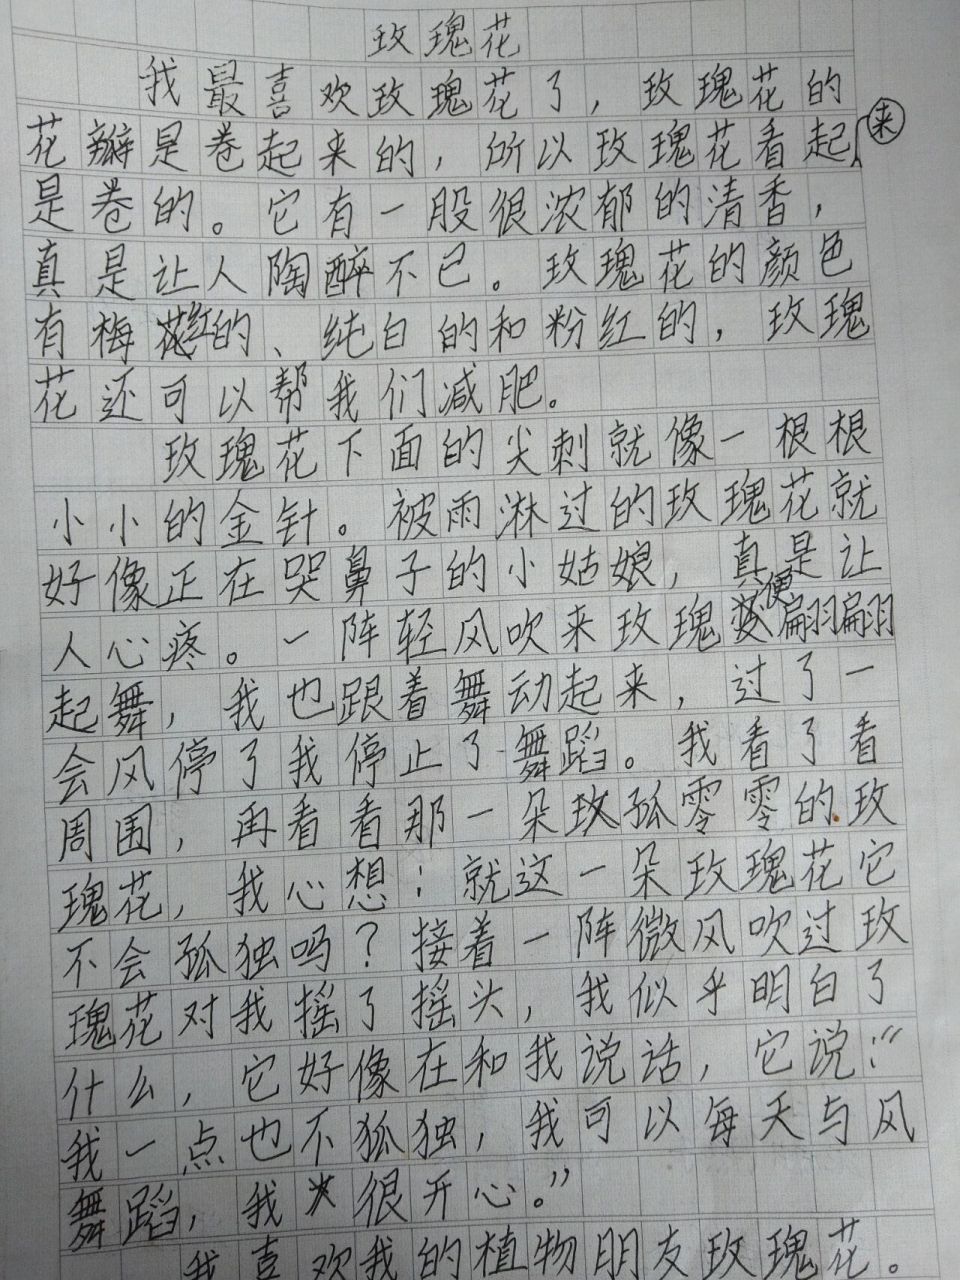 玫瑰花
我最喜欢玫瑰花了，玫瑰花的
花瓣是卷起来的，所以玫瑰花看起来
是卷的。它有一股很浓郁的清香，
真是让人陶醉不已。玫瑰花的颜色
有梅红的、纯白的和粉红的，玫瑰
花还可以帮我们减肥。
玫瑰花下面的尖刺就像一根根
小小的金针。被雨淋过的玫瑰花就
好像正在哭鼻子的小姑娘，真是让
人心疼。一阵轻风吹来玫瑰便翩翩
起舞，我也跟着舞动起来，过了一
会风停了我停止了舞蹈。我看了看
周围，再看看那一朵孤零零的玫
瑰花，我心想：就这一朵玫瑰花它
不会孤独吗？接着一阵微风吹过玫
瑰花对我摇了摇头，我似乎明白了
什么，它好像在和我说话，它说：“
我一点也不孤独，我可以每天与风
舞蹈，我很开心。”
我喜欢我的植物朋友玫瑰花。